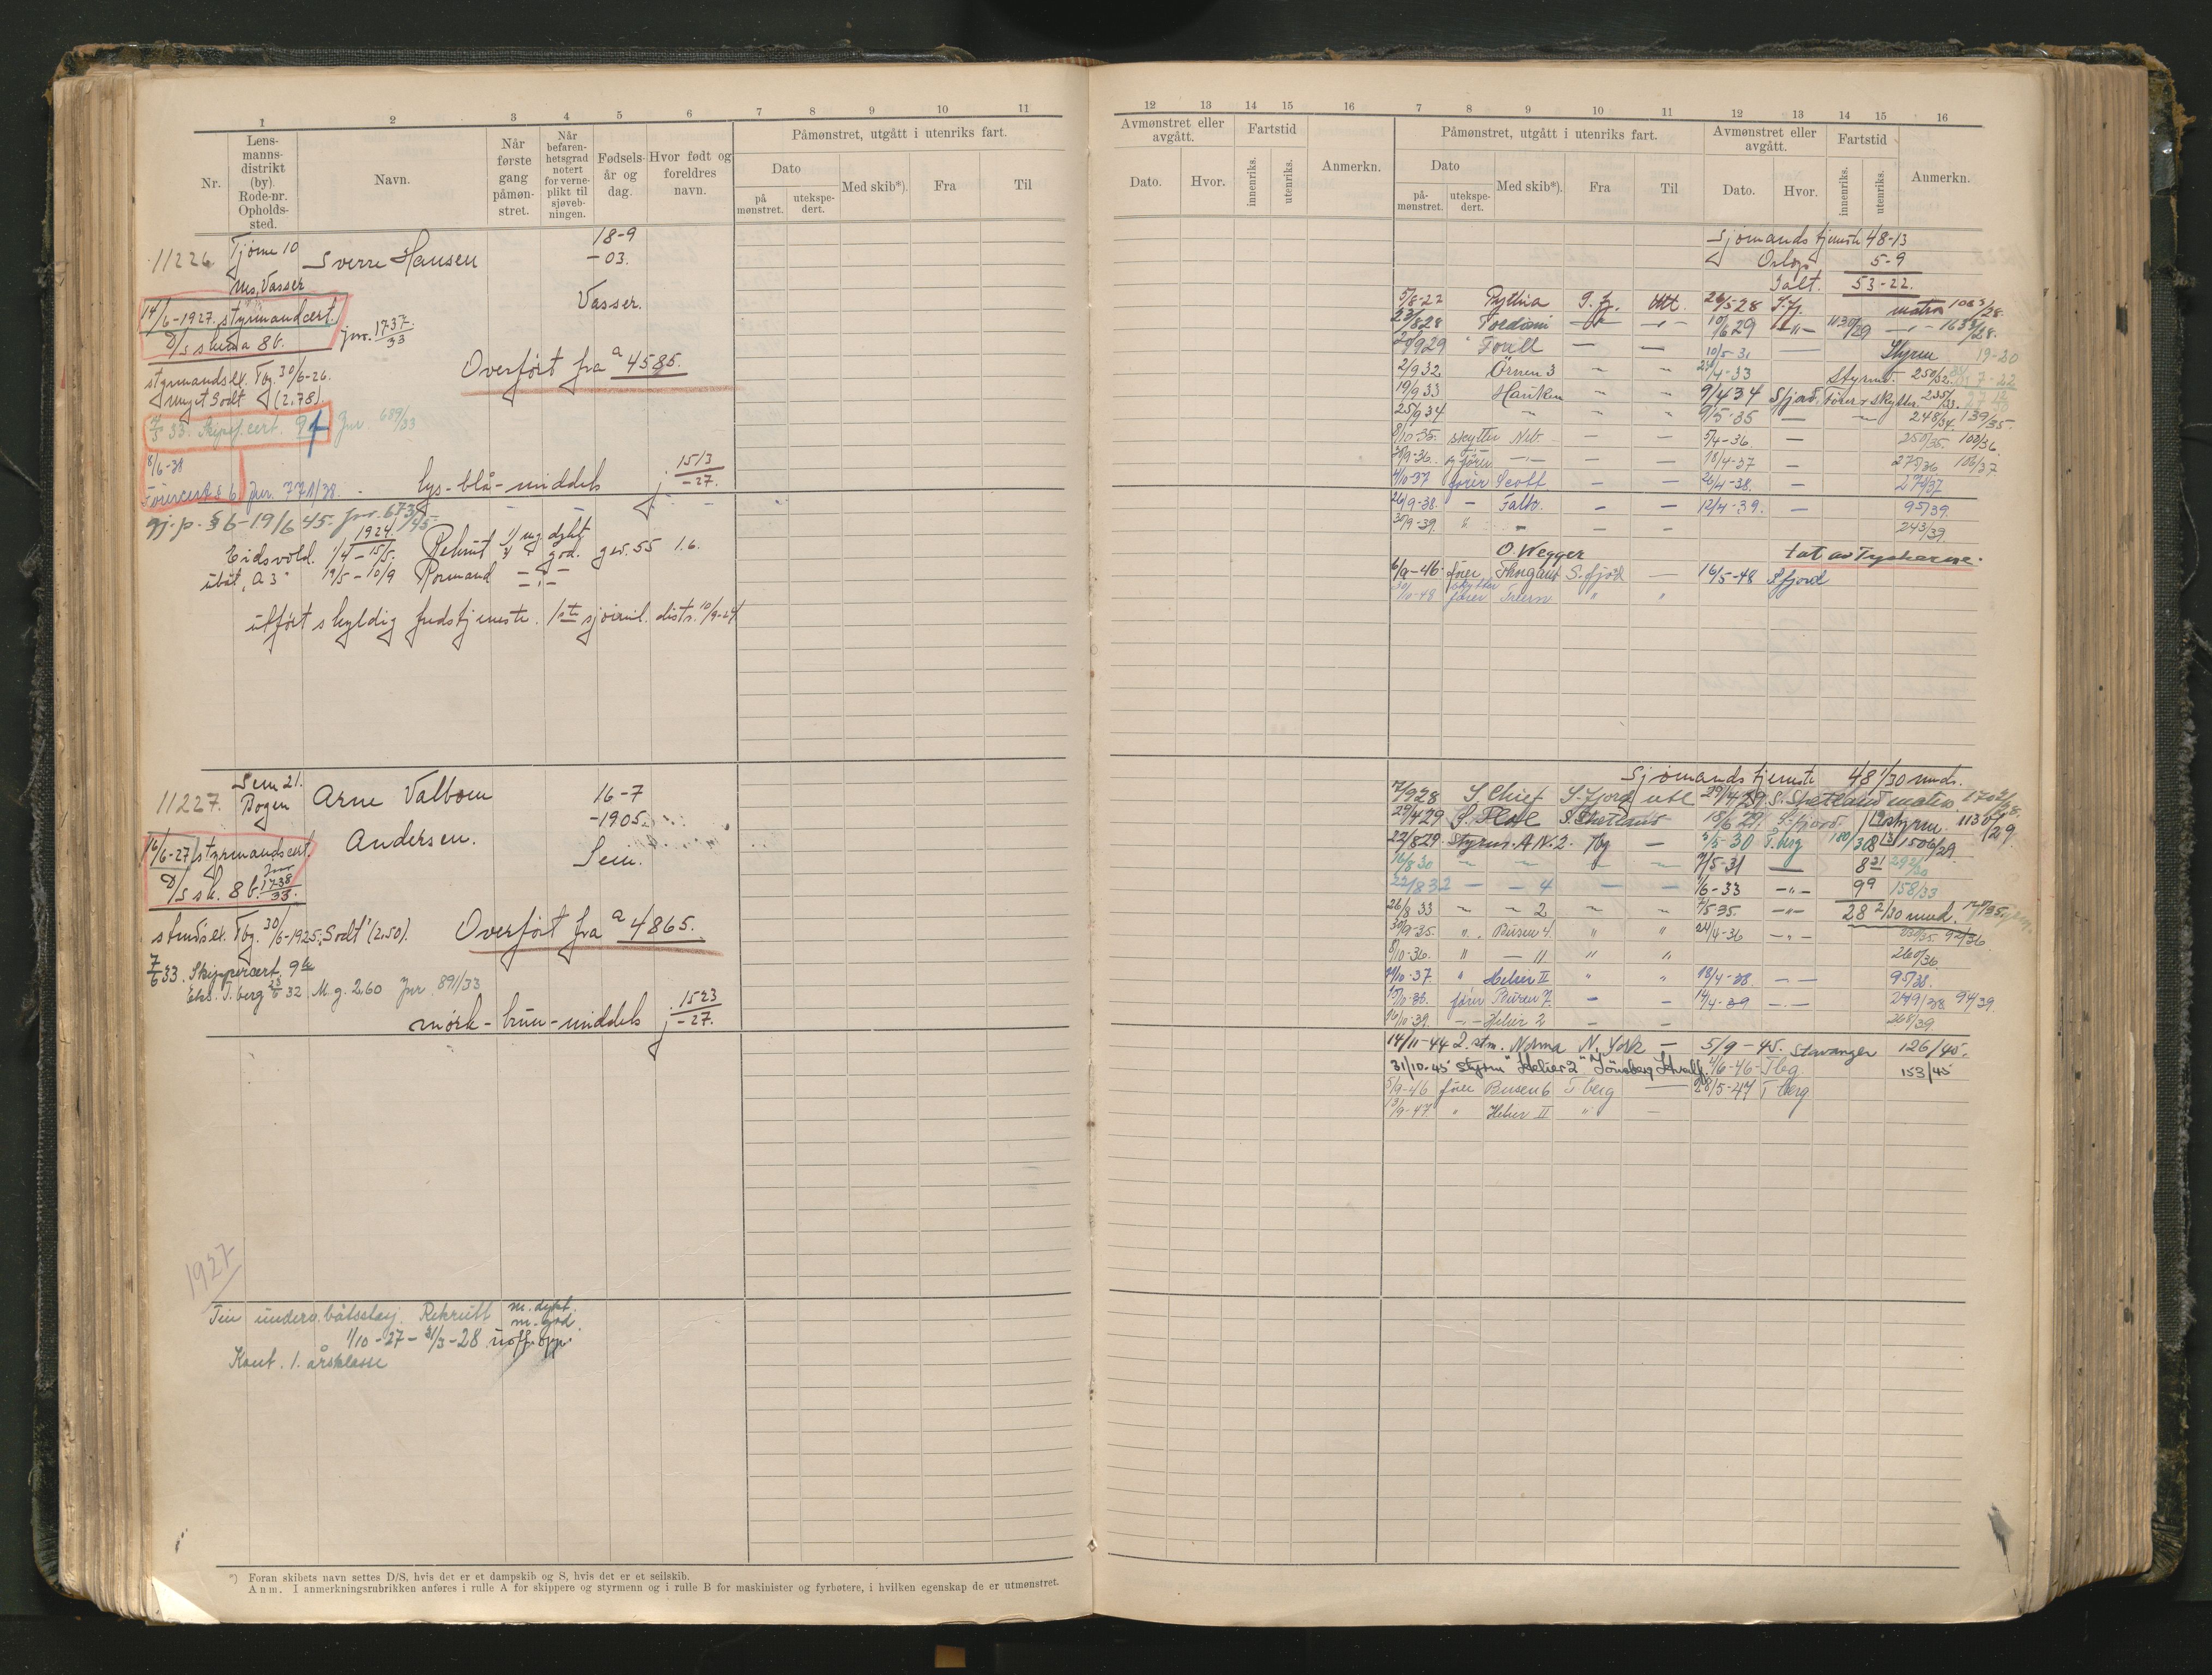 1 2 3 4 5 6 7 8 9 10 11
Nr.
Lens-
manns-
distrikt
(by).
Rode-nr.
Opholds-
sted.
Navn.
Når
første
gang
påmøn-
stret.
Når
befaren-
hetsgrad
notert
for verne-
plikt til
sjøveb-
ningen.
Fødsels-
år og
dag.
Hvor født og
foreldres
navn.
Påmønstret, utgått i utenriks fart.
Dato
på
mønstret.
utekspe-
dert.
Med skib*).
Fra
Til
11226 Tjøme 10 Sverre Hansen 18-9
-03.
Vasser
Vasser.
14/6-1927. styrmandcert.
D/S skema 8 b. jnr. 1737/33
Overført fra a 4585.
styrmandsex. Tbg. 30/6-26.
Meget Godt (2,78).
33. Skipsf.cert. Jnr 689/33
8/6-38
Førercert § 6 Jnr. 771/38.
lys - blå - middels j 1513/-27.
gj. p. § 6 - 19/6 45. jnr. 673/45
1924
Eidsvold. 1/4 - 15/5. Rekrut 1) mg. dygt
2) god. gev. 55 1.6.
ubåt "A 3" 19/5 - 10/9 Rormand
utført skyldig fredstjeneste. 1ste sjømil. distr. 10/9-24
11227. Sem 21. Arne Valbom 16-7
Bogen
-1905.
Andersen.
Sem.
16/6-27 styrmandscert.
D/S sk. 8 b. jnr 1738/33.
Overført fra a 4865.
stmdsex. Tbg. 30/6-1925, Godt (2.50).
7/6 33. Skippercert. 9
Eks. T.berg 23/5 32 M.g. 2,60 Jnr. 891/33
mørk - brun - middels j 1523/-27.
1927
Rekrutt m. dygt.
m. god.
1/10 - 27 - 31/3 - 28 uoff. opp.
Kont. 1. årsklasse
*) Foran skibets navn settes D/S, hvis det er et dampskib og S, hvis det er et seilskib.
Anm. I anmerkningsrubrikken anføres i rulle A for skippere og styrmenn og i rulle B for maskinister og fyrbøtere, i hvilken egenskap de er utmønstret.
12 13 14 15 16 7 8 9 10 11 12 13 14 15 16
Avmønstret eller
avgått.
Dato.
Hvor.
Fartstid
innenriks.
utenriks.
Anmerkn.
Påmønstret, utgått i utenriks fart.
Dato
på-
mønstret.
utekspe-
dert.
Med skib*).
Fra
Til
Avmønstret eller
avgått.
Dato.
Hvor.
Fartstid
innenriks.
utenriks.
Anmerkn.
Sjømands tjeneste 48-13
Orlog 5-9
Ialt. 53-22.
5/8-27 Pythia S.fj. Utl. 26/5 28 S.fj. matros
23/8 28 10/6 29 -"-
20/9 29 10/5-31 Styrm 19-20
2/9 32 Ørnen 3 - - 4-33 Styrmd. 250/32.
19/9 33 Hauken 9/4 34 Sfjord. fører + skytter 235/33.
25/9 34 " - - 9/5-35 - 248/34. 139/35.
8/10-35. skytter Neb - - 5/4-36. - 250/35. 100/36
28/9-36. og fører -"- - - 18/4-37 - 275/36 106/37
4/10-37 fører Scott - - 26/4-38. - 274/37
26/9-38. - Falk. - - 12/4-39. - 95/39.
30/9-39. - - 243/39.
O. Wegger tat av Tyskerne.
6/9-46. fører Thorgaut S.fjord - 16/5-48 Sfjord
skytter
48 fører " "
Sjømands tjeneste 48 1/30 mnds.
7/9 28 S. Chief S.fjord utl 29/4 29 S. Shetland matros 170
29/4 29 S. Shetland 18/6 29. S.fjord. styrm. 1130/29.
22/8 29. Styrm. A.N.2. Tbg - 5/5-30 T.berg 1506/29
16/8 30 7/5-31 - 8 21 292/30
22/8 32 - - 4 - - 1/6-33 -"- 9 9 158/33
26/8 33 - - 2 - - 7/5 35. -"- 28 2/30 mnd.
30/9-35. " Busen 4 " " 24/4-36 -"- 230/35. 92/36
8/10-36. " - 11 " " 260/36.
14/10-37. " Helier II " " 18/4-38 - 95/38.
15/10-38. fører Busen 7. - - 14/4-39 - 249/38 94/39
16/10-39. -"- Helier 2 - - 268/39.
14/11-44 2. stm. Norma N. York - 5/9-45. Stavanger 126/45.
31/10-45 styrm "Helier 2" Tønsberg Hvalf. 1/6-46 Tbg. 153/45
5/9-46 fører Busen 6 T berg - 28/5-47 T berg
13/9-47 " Helier II " -